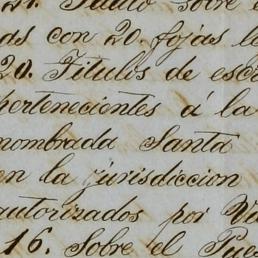 21. Título sobre
as con 20. fojas
20. Titulos de
pertenecientes á la
nombrada Santa
en la jurisdiccion
autorizados por
16. Sobre el